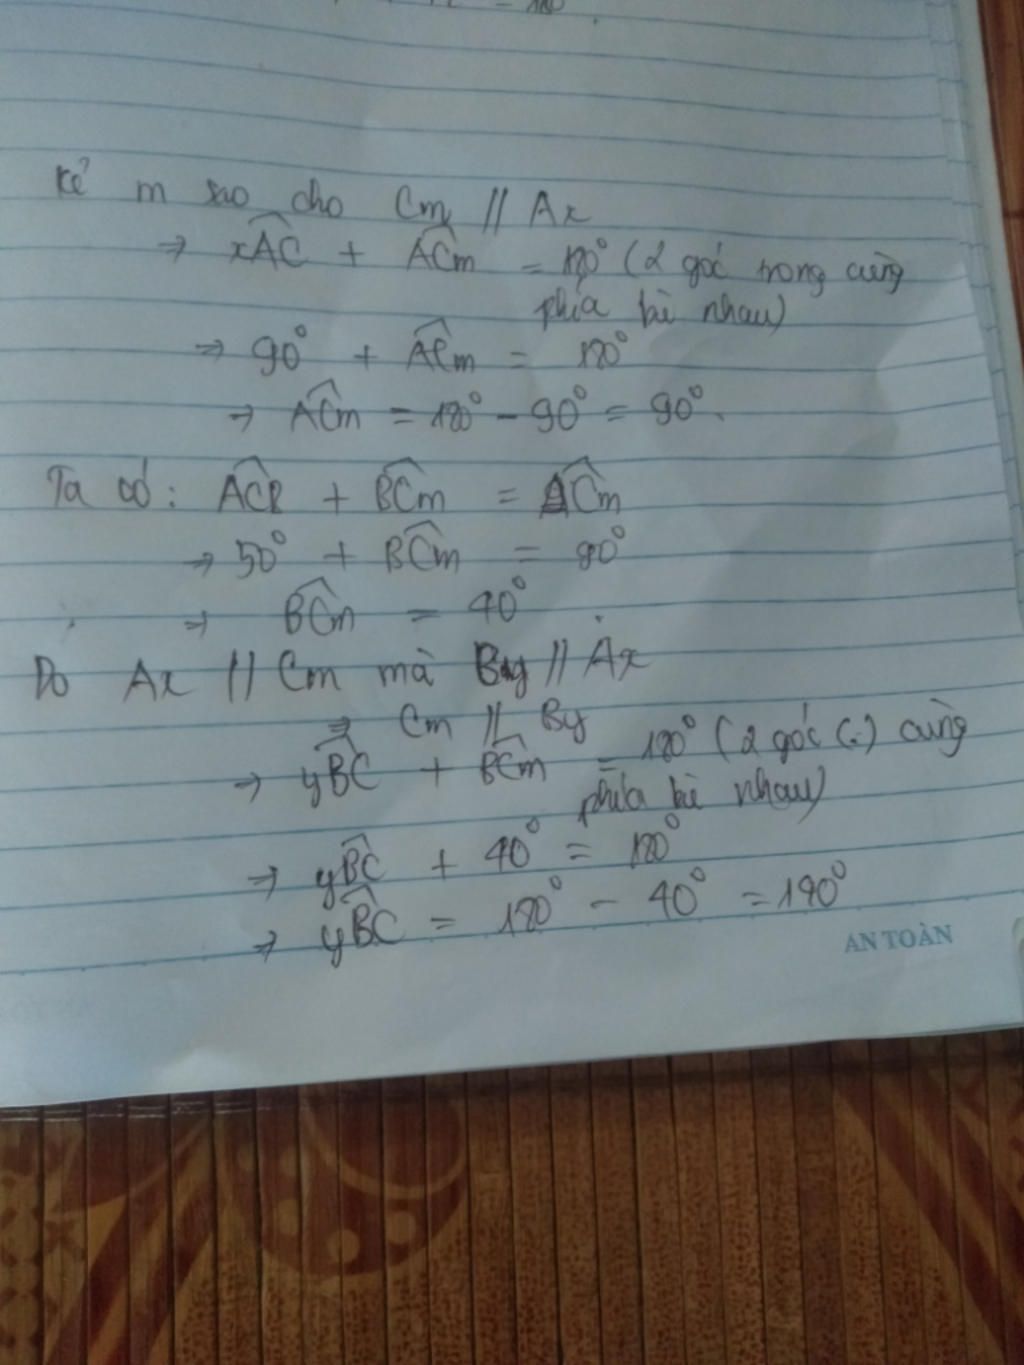 Kẻ m sao cho Cm // Ax
⇒ xAC + ACm = 180° (2 góc trong cùng
phía bù nhau)
⇒ 90° + ACm = 180°
⇒ ACm = 180° - 90° = 90°.
Ta có: ACB + BCm = ACm
⇒ 50° + BCm = 90°
⇒ BCm = 40°
Do Ax // Cm mà By // Ax
⇒ Cm // By
⇒ yBC + BCm = 180° (2 góc (.) cùng
phía bù nhau)
⇒ yBC + 40° = 180°
⇒ yBC = 180° - 40° = 140°
AN TOÀN